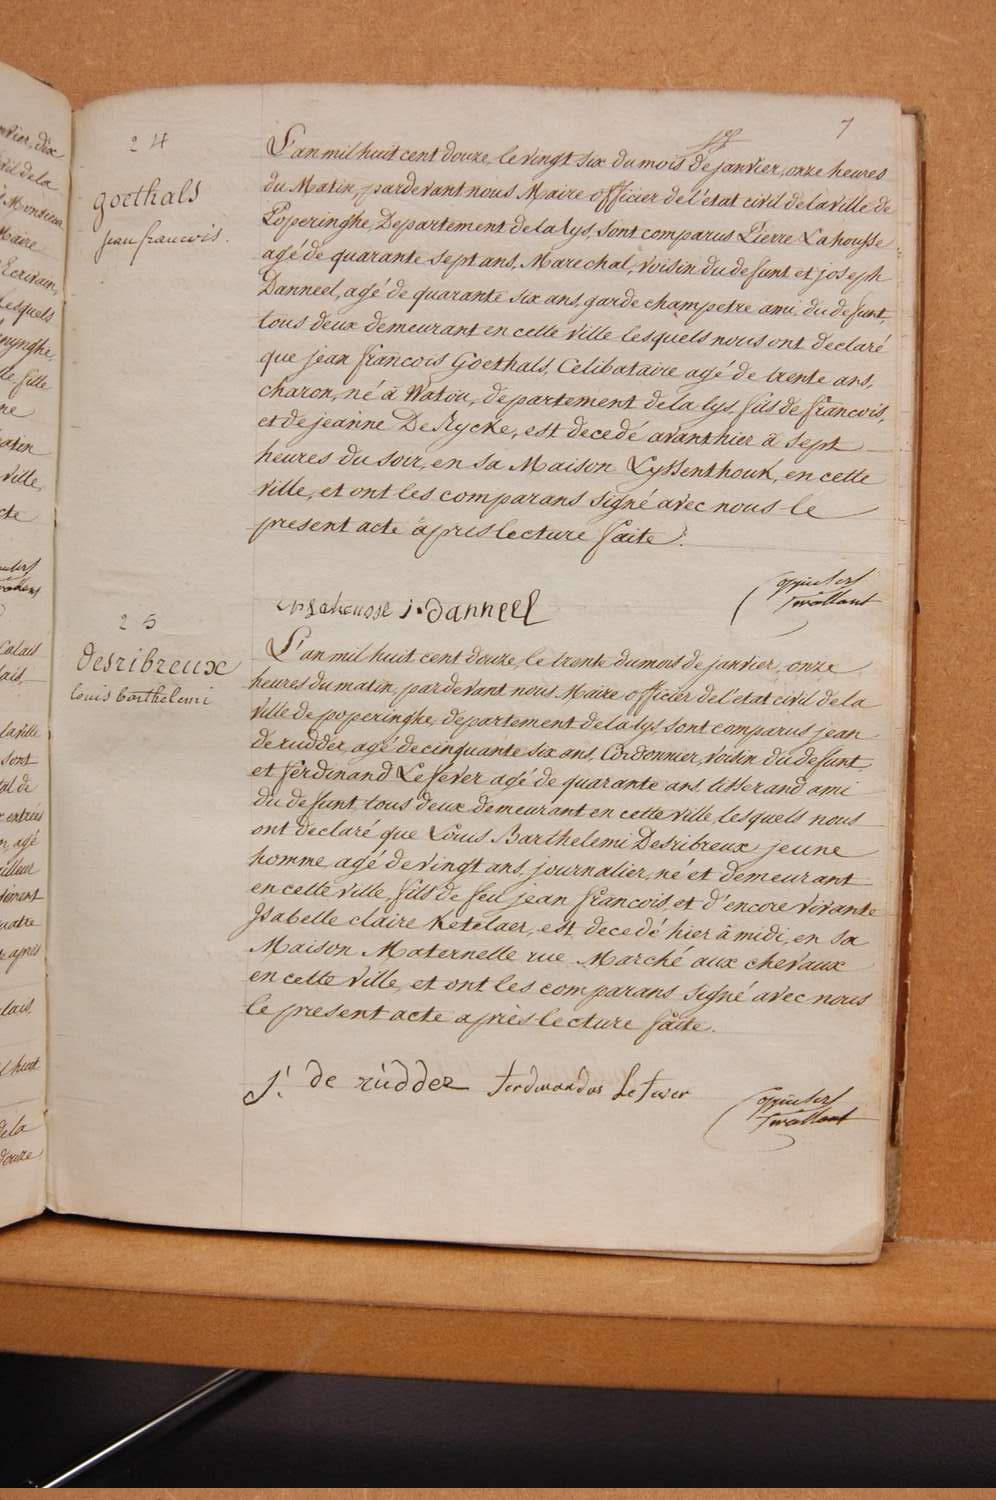 7
24
goethals
jean francois.
L'an mil huit cent douze, le vingt six du mois de janvier, onze heures
du Matin, pardevant nous Maire officier de l'état civil de la ville de
Poperinghe, Departement de la lys, sont comparus Pierre Lahousse
agé de quarante sept ans, Marechal, voisin du defunt et joseph
Danneel, agé de quarante six ans, garde champetre ami du defunt,
tous deux demeurant en cette ville lesquels nous ont declaré
que jean francois Goethals, Celibataire agé de trente ans,
charon, né à Watou, departement de la lys, fils de francois,
et de jeanne DeRycke, est decedé avant hier à sept
heures du soir, en sa Maison Lyssenthouk, en cette
ville, et ont les comparans signé avec nous le
present acte après lecture faite.
Lahousse j. danneel
25
desribreux
louis barthelemi
L'an mil huit cent douze, le trente du mois de janvier, onze
heures du matin, pardevant nous Maire officier de l'etat civil de la
ville de poperinghe, departement de la lys, sont comparus jean
de rudder, agé de cinquante six ans, Cordonnier, voisin du defunt,
et ferdinand Lefever agé de quarante ans, tisserand ami
du defunt, tous deux demeurant en cette ville, lesquels nous
ont declaré que Louis Barthelemi Desribreux jeune
homme, agé de vingt ans, journalier, né et demeurant
en cette ville, fils de feu jean francois, et d'encore vivante
Isabelle claire Ketelaer, est decedé hier à midi, en sa
Maison Maternelle rue Marché aux chevaux
en cette ville, et ont les comparans signé avec nous
le present acte après lecture faite.
J. de rudder ferdinandus Le fever